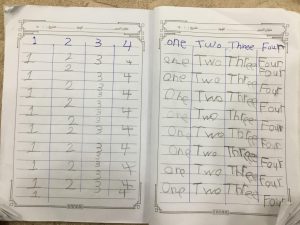 1 2 3 4
1 2 3 4
2 3
1 2 3 4
2 3
1 2 3 4
1 2 3 4
1 2 3 4
1 2 3 4
1 2 3 4
1 2 3 4
1 2 3 4
1 4
one Two Three Four
one Two Three Four
one Two Three Four
One Two Three Four
one Two Three Four
one Two Three Four
one Two Three Four
one Two Three Four
One Two Three Four
Four